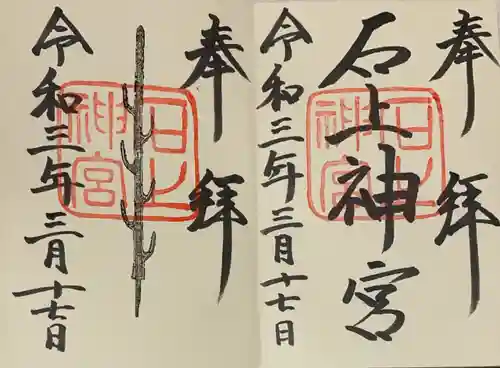 奉拝
石上神宮
令和三年三月十七日
石上
神宮
奉拝
令和三年三月十七日
石上
神宮